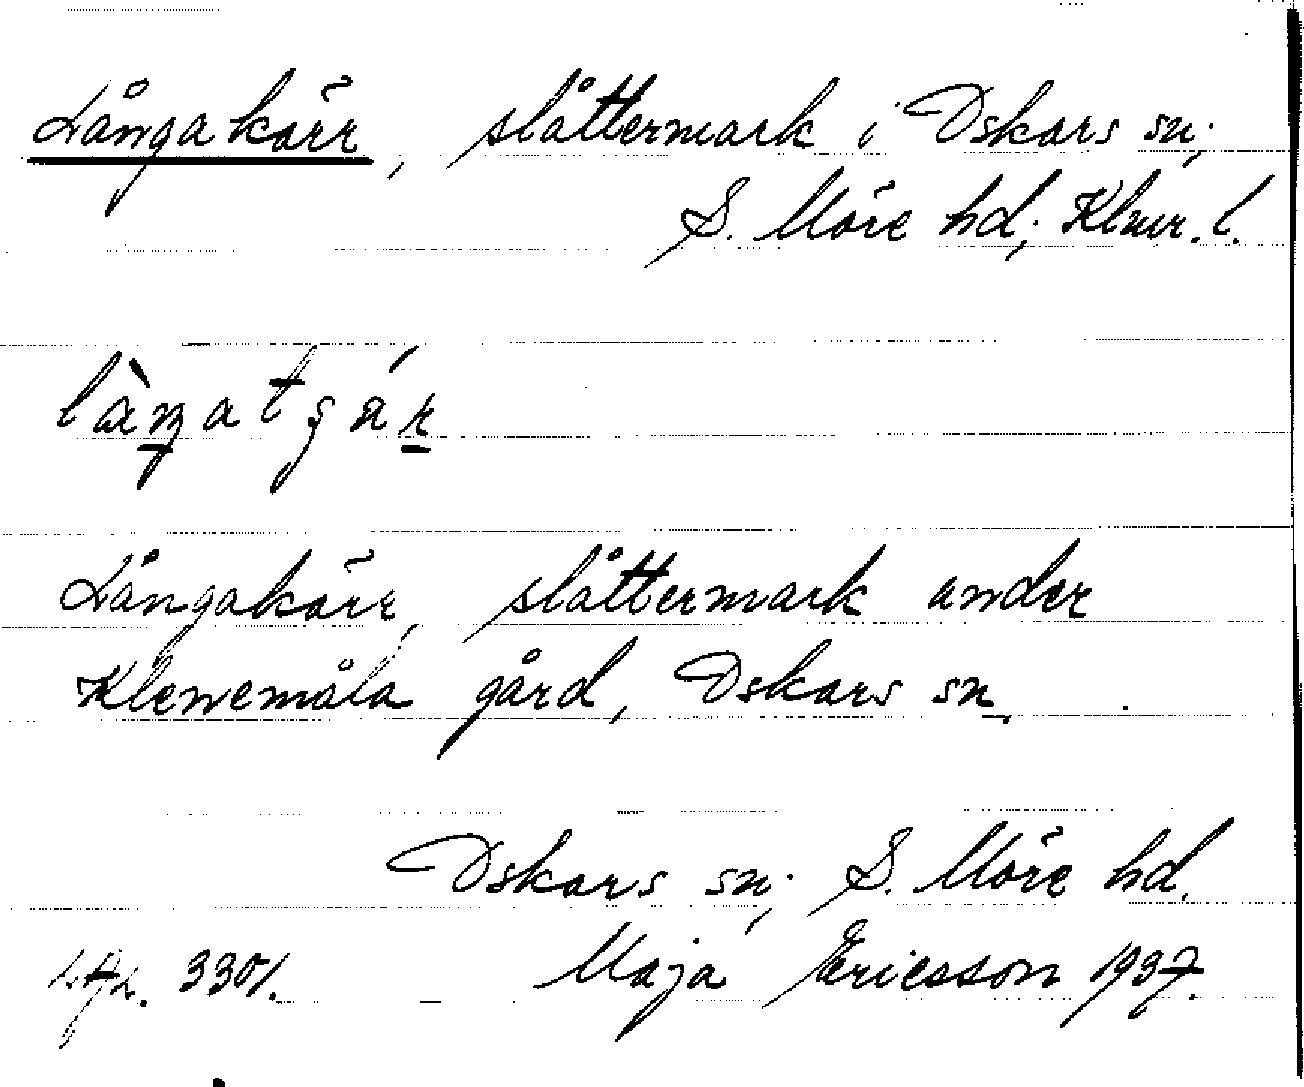 Långakärr, slåttermark i Oskars sn;
S. Möre hd; Klmr. l.
Långakärr, slåttermark under
Klevemåla gård, Oskars sn.
Oskars sn; S. Möre hd.
3301. Maja Ericsson 1937.